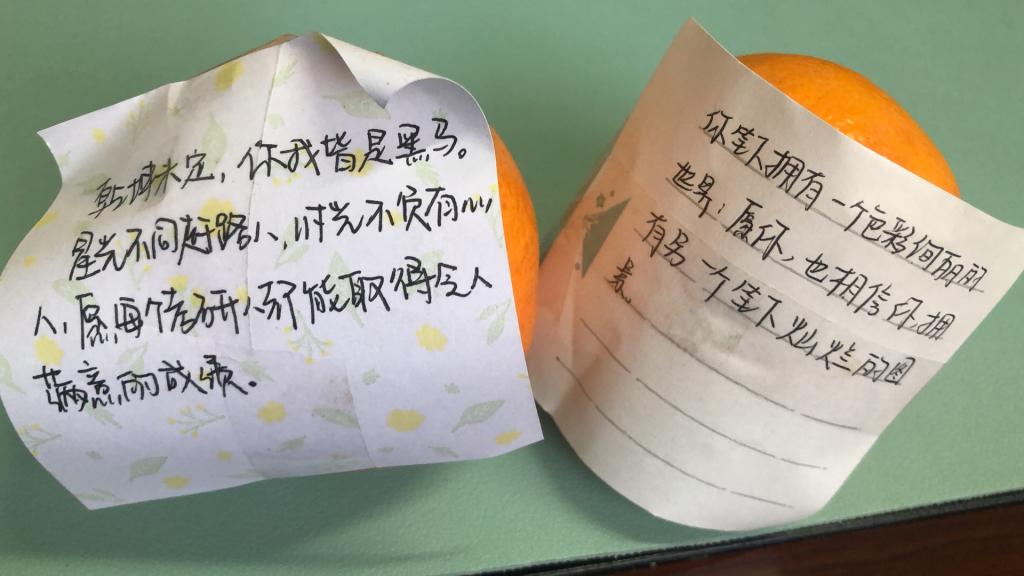 乾坤未定，你我皆是黑马。
星光不问赶路人，时光不负有心
人，愿每个考研人都能取得令人
满意的成绩。
你笔下拥有一个色彩绚丽的
世界；愿你，也相信你拥
有另一个笔下灿烂的图
景。